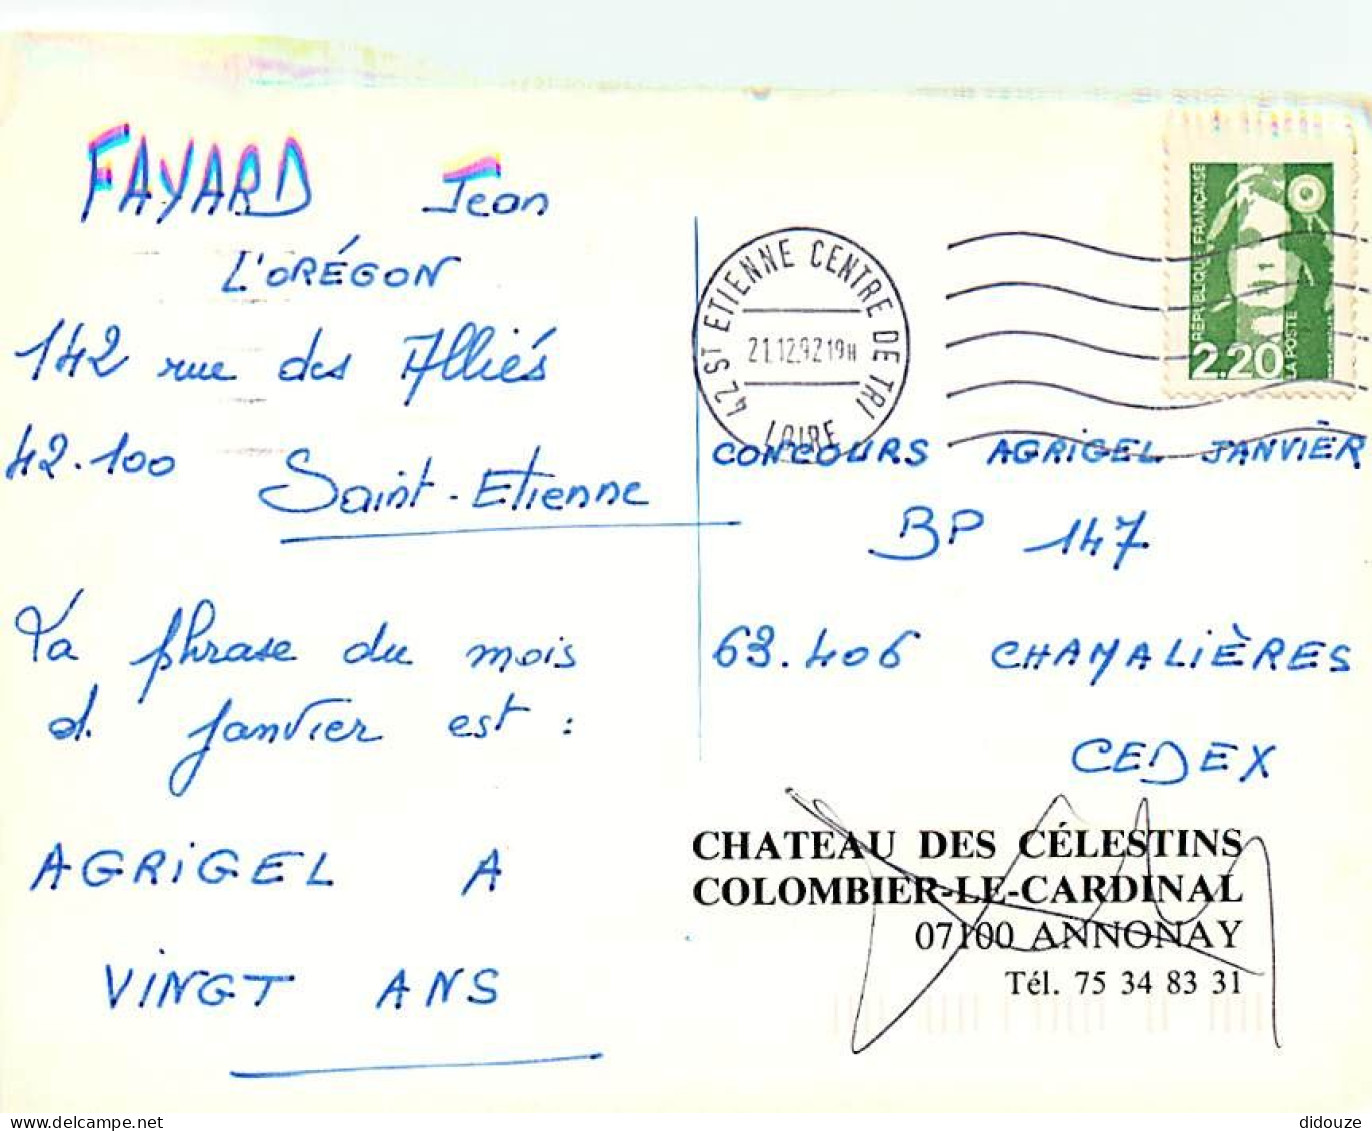 FAYARD Jean
L'ORÉGON
142 rue des Alliés
42.100 Saint-Etienne
La phrase du mois
d. janvier est :
AGRIGEL A
VINGT ANS
42 ST ETIENNE CENTRE DE TRI
21.12.92 19H
LOIRE
RÉPUBLIQUE FRANÇAISE
2.20
LA POSTE
CONCOURS AGRIGEL JANVIER
BP 147
63.406 CHAMALIÈRES
CEDEX
CHATEAU DES CÉLESTINS
COLOMBIER-LE-CARDINAL
07100 ANNONAY
Tél. 75 34 83 31
delcampe.net
didouze